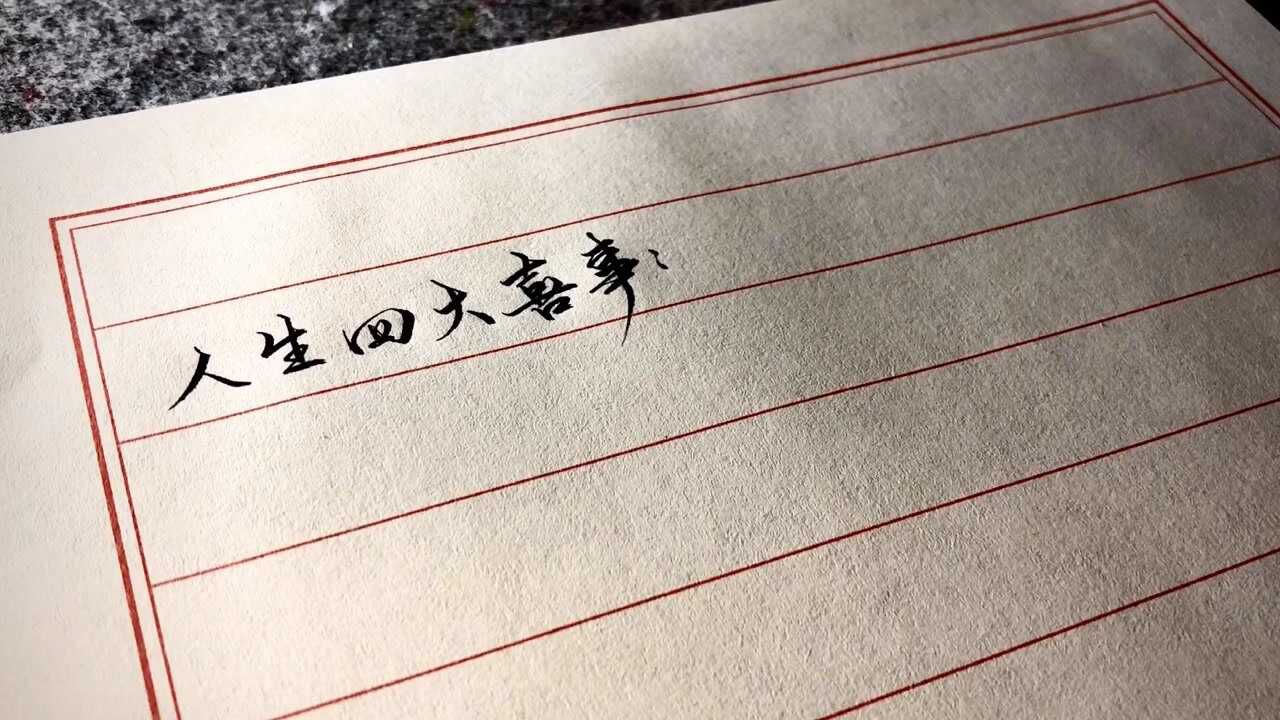 人生四大喜事：